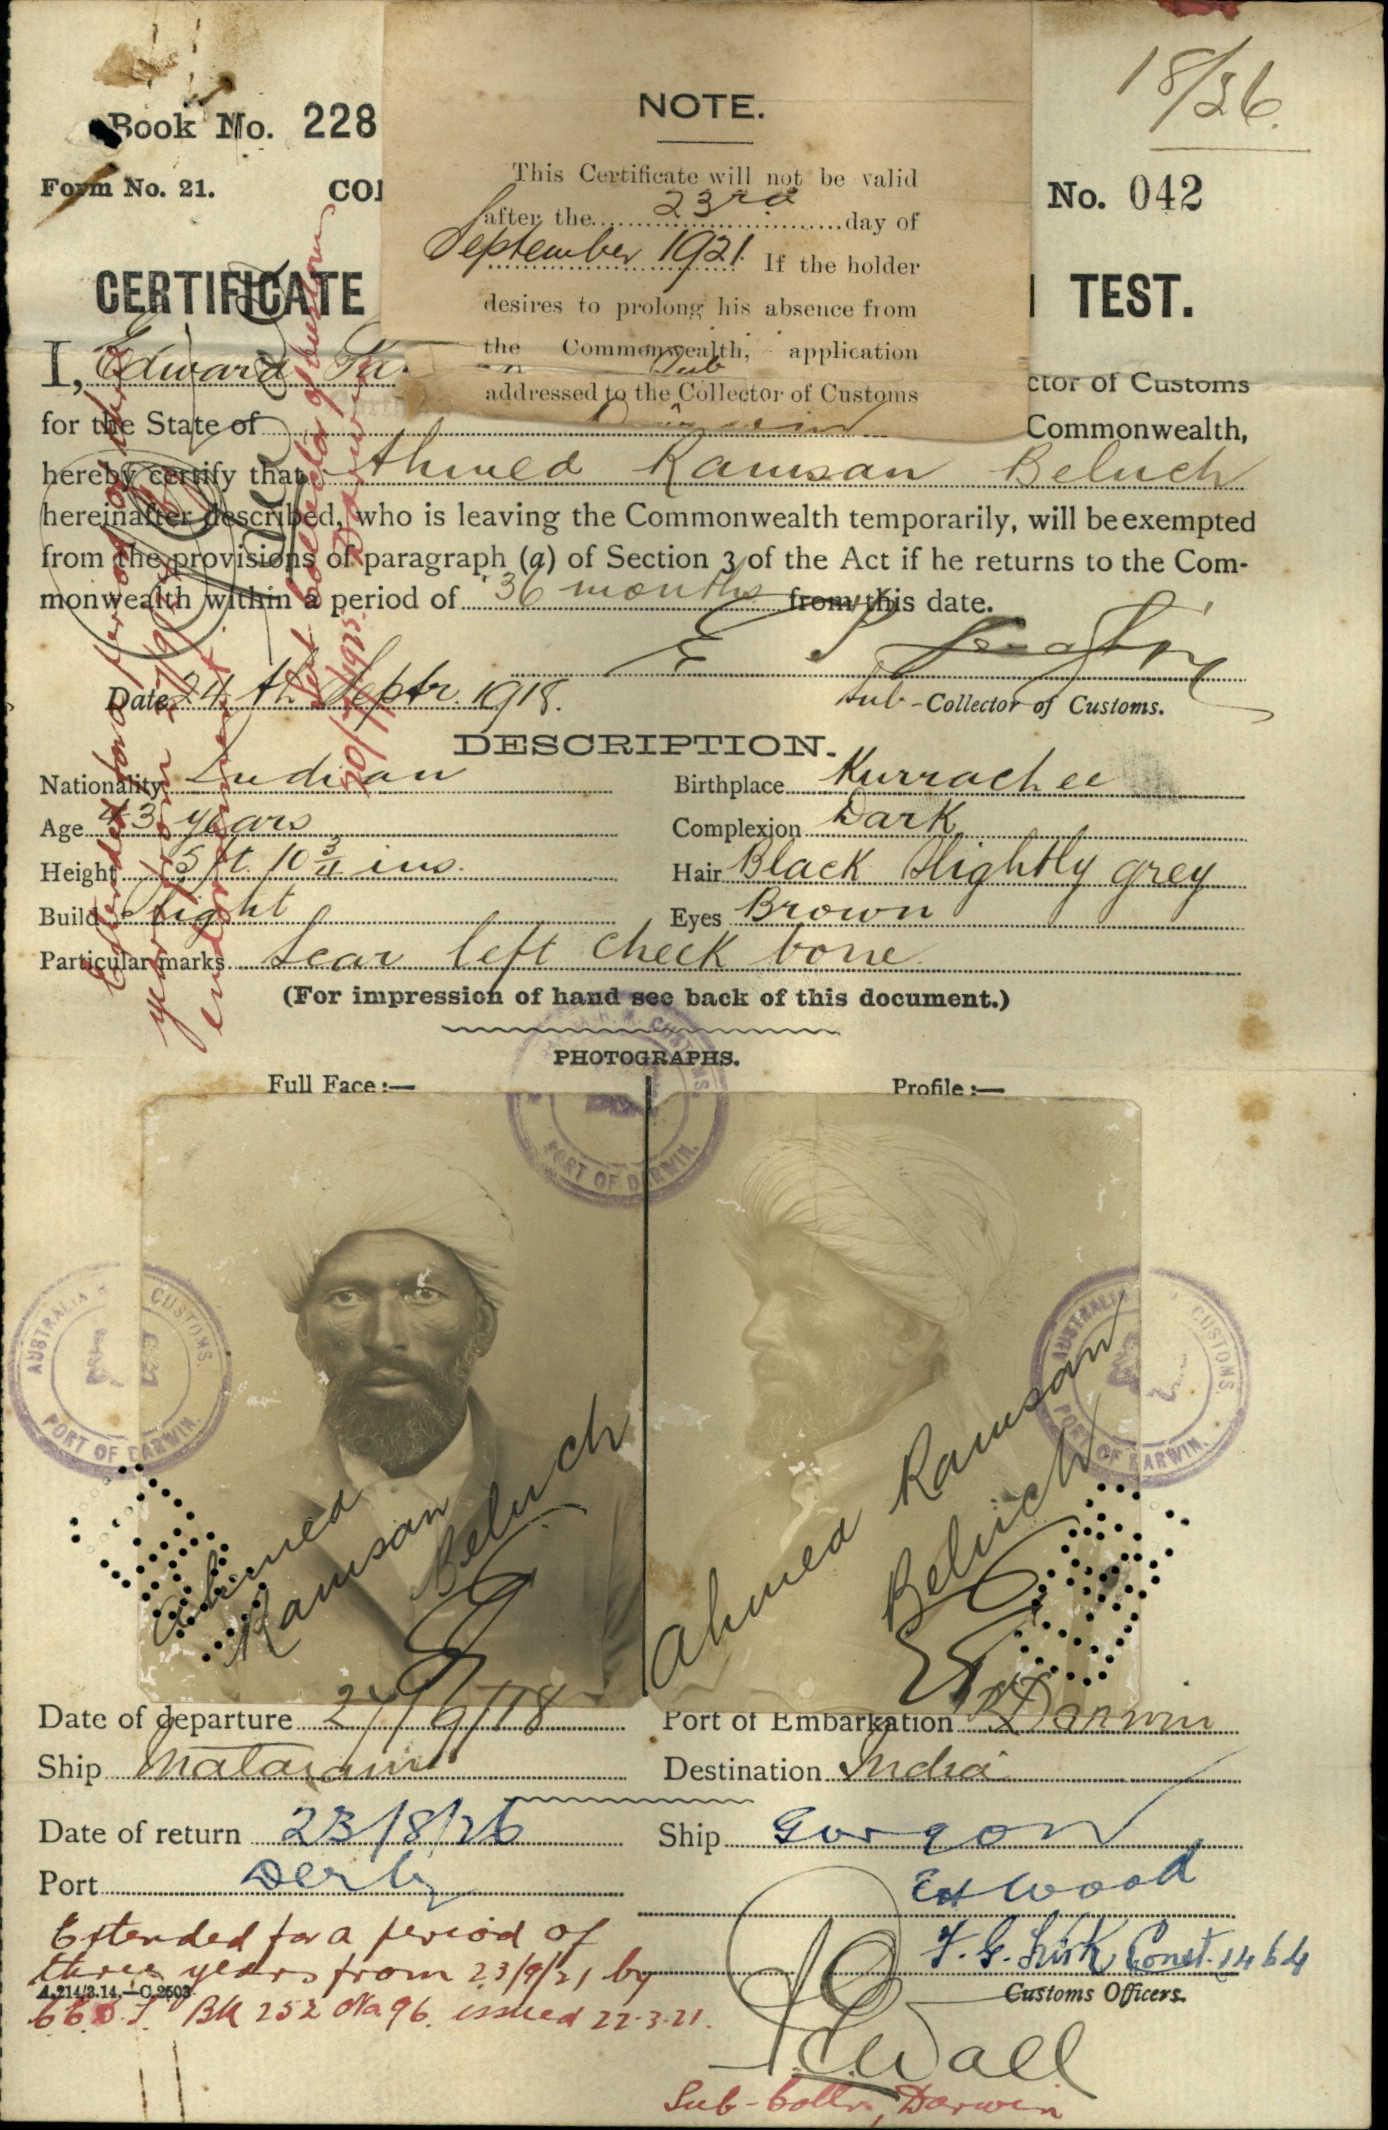 18/26.
Book No. 228
NOTE.
This Certificate will not be valid
after the 23rd day of
September 1921. If the holder
desires to prolong his absence from
the Commonwealth, application
Sub
addressed to the Collector of Customs
Darwin
Form No. 21.
No. 042
CERTIFICATE TEST.
I, Edward
ctor of Customs
for the State of Commonwealth,
hereby certify that Ahmed Ramsan Beluch
hereinafter described, who is leaving the Commonwealth temporarily, will be exempted
from the provisions of paragraph (a) of Section 3 of the Act if he returns to the Com-
monwealth within a period of 36 months from this date.
Date 24th Septr. 1918.
Sub-Collector of Customs.
DESCRIPTION.
Nationality Indian Birthplace Kurrachee
Age 43 years Complexion Dark
Height 5 ft. 10 3/4 ins. Hair Black slightly grey
Build Slight Eyes Brown
Particular marks Scar left cheek bone
(For impression of hand see back of this document.)
PHOTOGRAPHS.
Full Face :— Profile :—
CUSTOMS.
PORT OF DARWIN.
AUSTRALIA CUSTOMS.
PORT OF DARWIN.
AUSTRALIA CUSTOMS.
PORT OF DARWIN.
Ahmed
Ramsan
Beluch
Ahmed Ramsan
Beluch
Date of departure 24/9/18 Port of Embarkation Darwin
Ship Mataram Destination India
Date of return 23/8/26 Ship Gorgon
Port Derby
Wood
F. G. Kirk Const. 1464
Customs Officers.
Extended for a period of
three years from 23/9/21 by
A.214/3.14.—C.2503.
C.E.D.T. Bk 252 No 96. issued 22.3.21.
Wall
Sub-Collr, Darwin
Extended for a period of
year from
endorsement.
Sub Collector of Customs
20/7/1925. Darwin